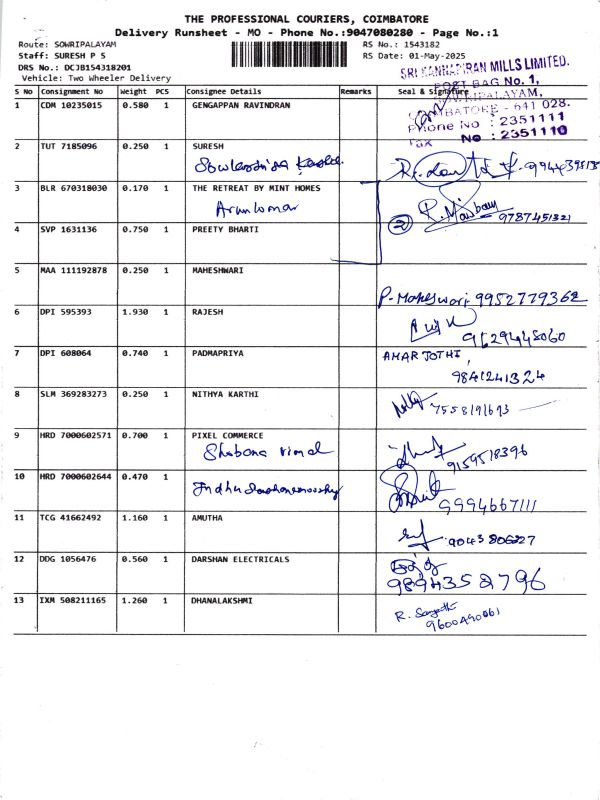 THE PROFESSIONAL COURIERS, COIMBATORE
Delivery Runsheet - MO - Phone No.:9047080280 - Page No.:1
Route: SOWRIPALAYAM RS No.: 1543182
Staff: SURESH P S RS Date: 01-May-2025
DRS No.: DCJB154318201
Vehicle: Two Wheeler Delivery
SRI KANNAPIRAN MILLS LIMITED.
POST BAG No. 1,
SOWRIPALAYAM,
COIMBATORE - 641 028.
Phone No : 2351111
Fax No : 2351110
S No Consignment No Weight PCS Consignee Details Remarks Seal & Signature
1 CDM 10235015 0.580 1 GENGAPPAN RAVINDRAN
2 TUT 7185096 0.250 1 SURESH
3 BLR 670318030 0.170 1 THE RETREAT BY MINT HOMES
Arunkumar
2 9787451321
4 SVP 1631136 0.750 1 PREETY BHARTI
5 MAA 111192878 0.250 1 MAHESHWARI
P. Maheswari 9952779362
6 DPI 595393 1.930 1 RAJESH
9629448060
7 DPI 608064 0.740 1 PADMAPRIYA AMAR JOTHI,
9841241324
8 SLM 369283273 0.250 1 NITHYA KARTHI
7558191693
9 HRD 7000602571 0.700 1 PIXEL COMMERCE
Shobana vimal 9159518396
10 HRD 7000602644 0.470 1
9994667111
11 TCG 41662492 1.160 1 AMUTHA
9043806227
12 DDG 1056476 0.560 1 DARSHAN ELECTRICALS
9894358796
13 IXM 508211165 1.260 1 DHANALAKSHMI
9600490061